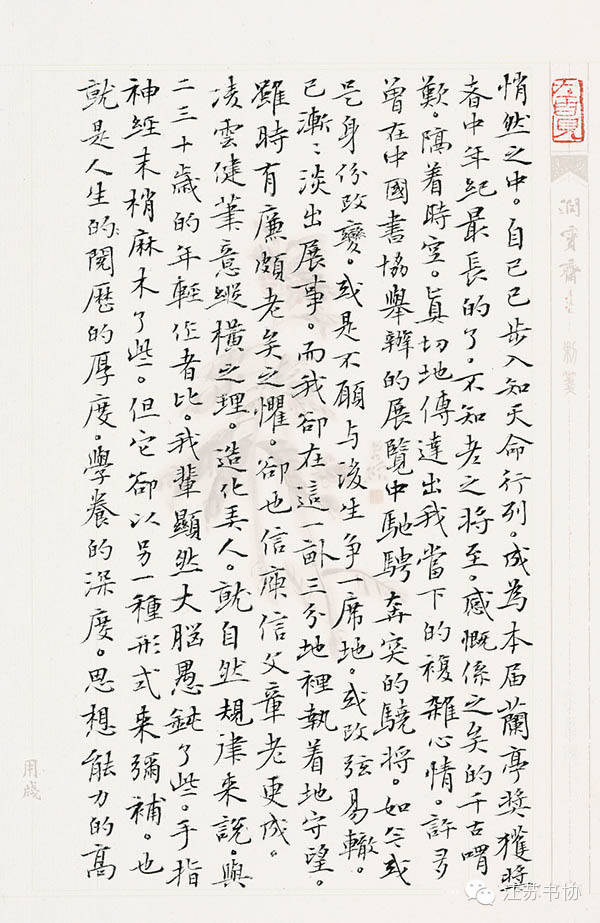 悄然之中。自己已步入知天命行列。成為本届蘭亭奬獲奬
者中年紀最長的了。不知老之將至。感慨係之矣的千古喟
歎。隔着時空。真切地傳達出我當下的複雜心情。許多
曾在中國書協舉辦的展覽中馳騁奔突的驍將。如今或
是身份改變。或是不願与後生争一席地。或改弦易轍。
已漸漸淡出展事。而我卻在這一畝三分地裡執着地守望。
雖時有廉頗老矣之懼。卻也信庾信文章老更成。
凌雲健筆意縱横之理。造化弄人。就自然規律來説。與
二三十歲的年輕作者比。我輩顯然大腦愚鈍了些。手指
神經末梢麻木了些。但它卻以另一種形式来彌補。也
就是人生的閱歷的厚度。學養的深度。思想能力的高
潤寶齋
用牋
江苏书协